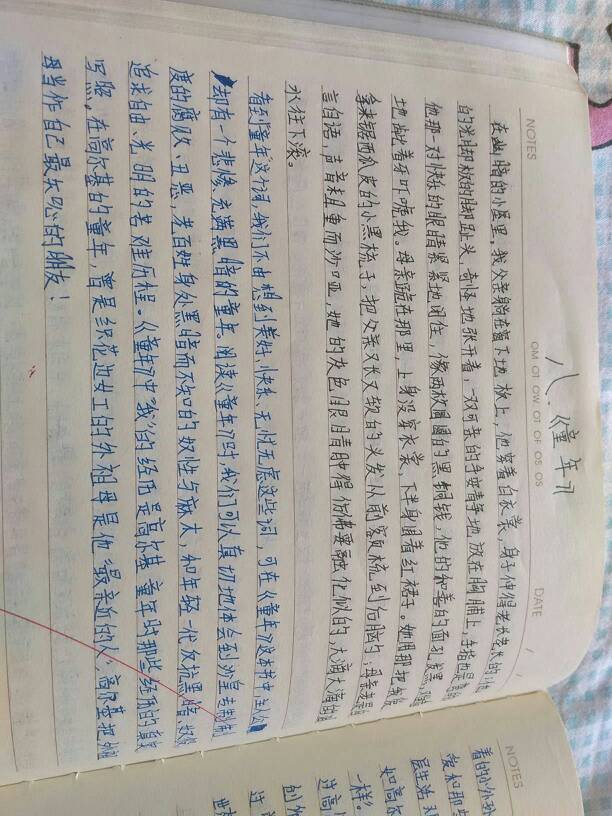 NOTES
DATE
MO TU WE TH FR SA SU
八.《童年》
在幽暗的小屋里,我父亲躺在窗下地板上,他穿着白衣裳,身子伸得老长老长的;他
的光脚板的脚趾头,奇怪地张开着,一双可亲的手安静地放在胸脯上,手指也是弯的
他那一对快乐的眼睛紧紧地闭住,像两枚圆圆的黑铜钱,他的和善的面孔发黑,
地龇着牙吓唬我。母亲跪在那里,上身没穿衣裳,下半身围着红裙子。她用那把
拿来锯西瓜皮的小黑梳子,把父亲又长又软的头发从前额梳到后脑勺;母亲老是
言自语,声音粗重而沙哑,她的灰色眼睛肿得仿佛要融化似的,大滴大滴的泪
水往下滚。
看到"童年"这个词,我们不由想到美好、快乐、无忧无虑这些词,可在《童年》这本书中主人公
却有一个悲惨、充满黑暗的童年。阅读《童年》时,我们可以真切地体会到沙皇专制制
度的腐败、丑恶,老百姓身处黑暗而不知的奴性与麻木,和年轻一代反抗黑暗
追求自由、光明的苦难历程。《童年》中"我"的经历是高尔基童年时那些经历的真实
写照,在高尔基的童年,曾是织花边女工的外祖母是他"最亲近的人",高尔基把外祖
母当作自己最知心的朋友!
NOTES